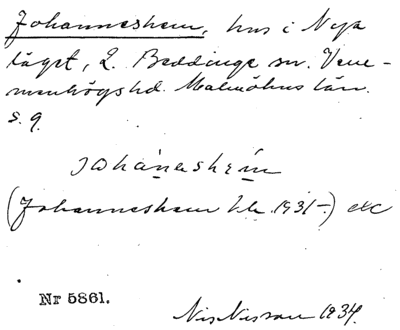 Johanneshem, hus i Nya
läget, L. Beddinge sn. Vemme-
menhögs hd. Malmöhus län.
s. 9.
johánəshem
(Johanneshem 1931-) etc
Nr 5861.
Nils Nilsson 1934.